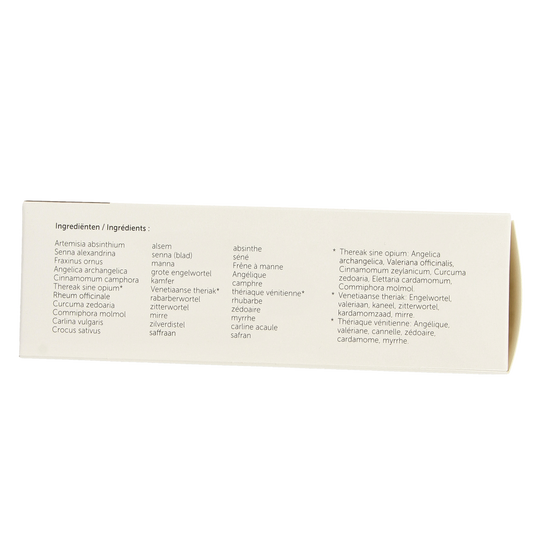 Ingrediënten / Ingrédients :
Artemisia absinthium
Senna alexandrina
Fraxinus ornus
Angelica archangelica
Cinnamomum camphora
Thereak sine opium*
Rheum officinale
Curcuma zedoaria
Commiphora molmol
Carlina vulgaris
Crocus sativus
alsem
senna (blad)
manna
grote engelwortel
kamfer
Venetiaanse theriak*
rabarberwortel
zitterwortel
mirre
zilverdistel
saffraan
absinthe
séné
Frêne à manne
Angélique
camphre
thériaque vénitienne*
rhubarbe
zédoaire
myrrhe
carline acaule
safran
* Thereak sine opium: Angelica
archangelica, Valeriana officinalis,
Cinnamomum zeylanicum, Curcuma
zedoaria, Elettaria cardamomum,
Commiphora molmol
* Venetiaanse theriak: Engelwortel,
valeriaan, kaneel, zitterwortel,
kardamomzaad, mirre
* Thériaque vénitienne: Angélique,
valériane, cannelle, zédoaire,
cardamome, myrrhe.